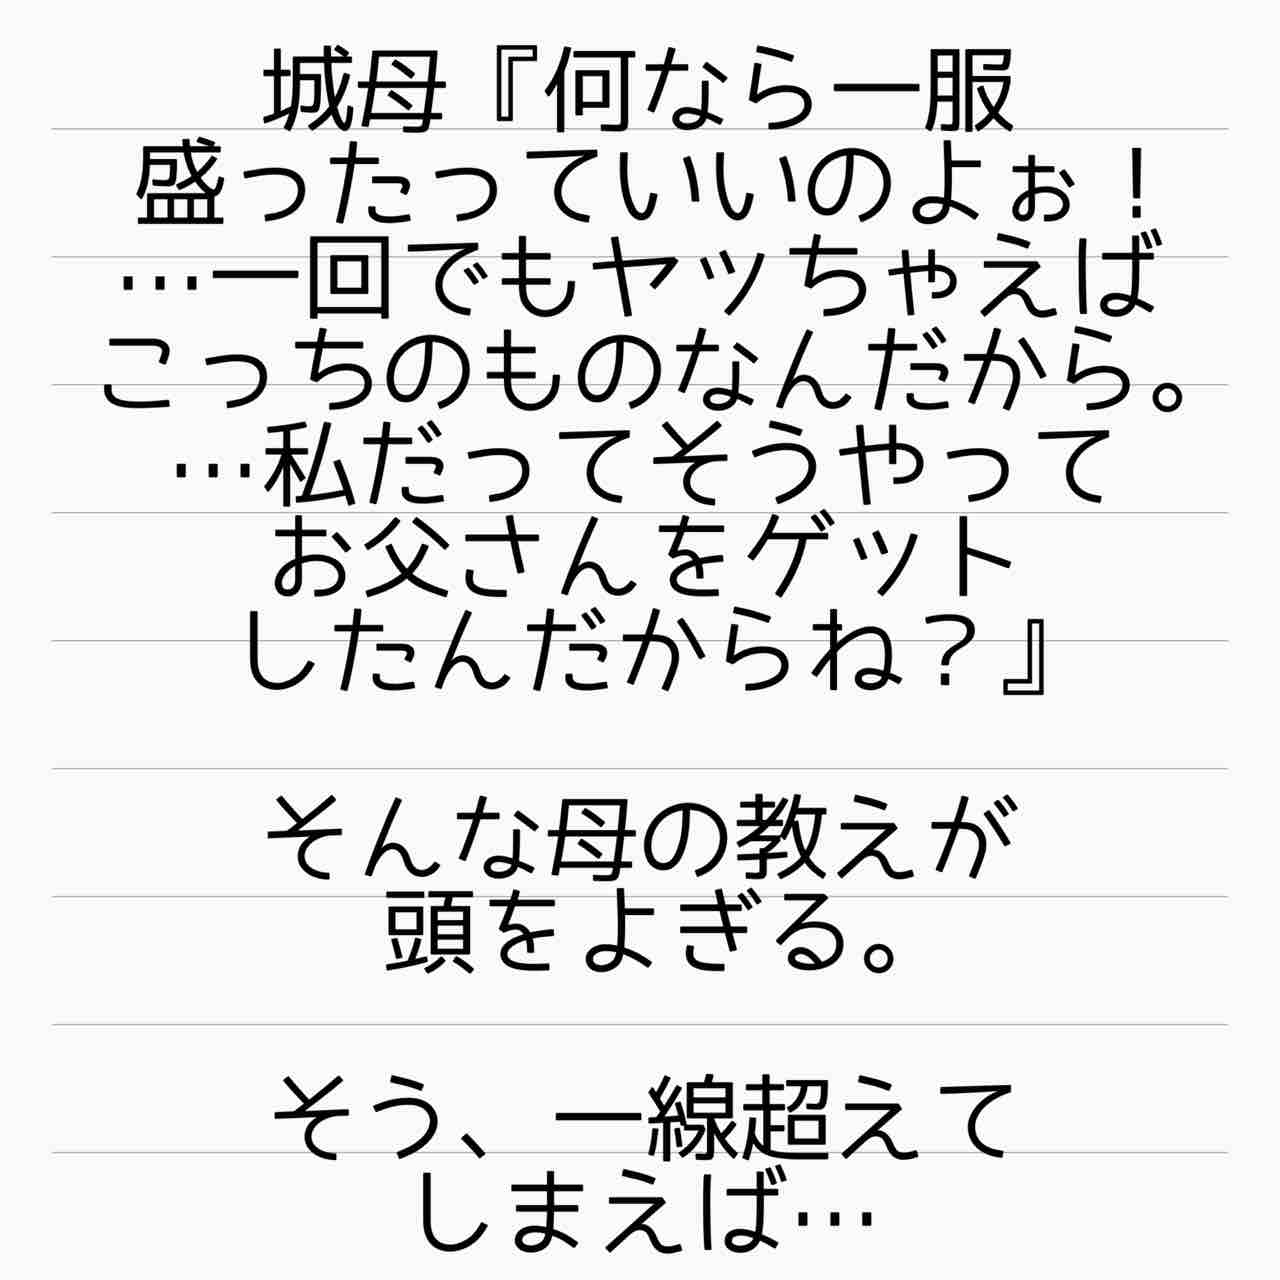 城母『何なら一服
盛ったっていいのよぉ！
…一回でもヤッちゃえば
こっちのものなんだから。
…私だってそうやって
お父さんをゲット
したんだからね？』
そんな母の教えが
頭をよぎる。
そう、一線超えて
しまえば…